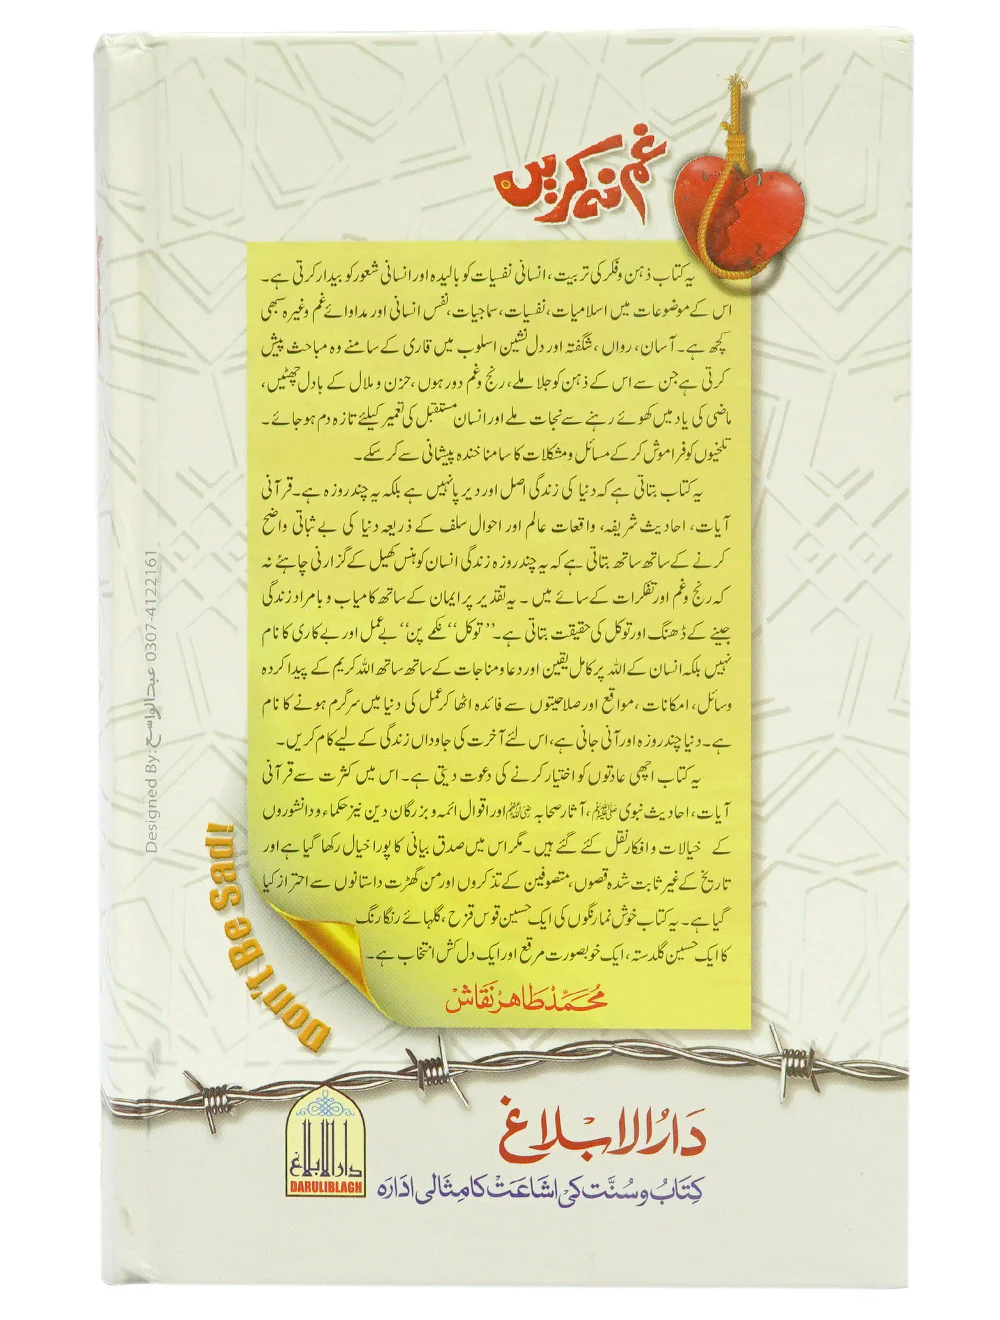 غم نہ کریں
یہ کتاب ذہن و فکر کی تربیت، انسانی نفسیات کو بالیدہ اور انسانی شعور کو بیدار کرتی ہے۔
اس کے موضوعات میں اسلامیات، نفسیات، سماجیات، نفس انسانی اور مداوائے غم وغیرہ سبھی
کچھ ہے۔ آسان، رواں، شگفتہ اور دل نشین اسلوب میں قاری کے سامنے وہ مباحث پیش
کرتی ہے جن سے اس کے ذہن کو جلا ملے، رنج و غم دور ہوں، حزن و ملال کے بادل چھٹیں،
ماضی کی یاد میں کھوئے رہنے سے نجات ملے اور انسان مستقبل کی تعمیر کیلئے تازہ دم ہو جائے۔
تلخیوں کو فراموش کر کے مسائل و مشکلات کا سامنا خندہ پیشانی سے کر سکے۔
یہ کتاب بتاتی ہے کہ دنیا کی زندگی اصل اور دیرپا نہیں ہے بلکہ یہ چند روزہ ہے۔ قرآنی
آیات، احادیث شریفہ، واقعات عالم اور احوال سلف کے ذریعہ دنیا کی بے ثباتی واضح
کرنے کے ساتھ ساتھ بتاتی ہے کہ یہ چند روزہ زندگی انسان کو ہنس کھیل کے گزارنی چاہئے نہ
کہ رنج و غم اور تفکرات کے سائے میں۔ یہ تقدیر پر ایمان کے ساتھ کامیاب و بامراد زندگی
جینے کے ڈھنگ اور توکل کی حقیقت بتاتی ہے۔ ’’توکل‘‘ نکمے پن‘‘ بے عمل اور بے کاری کا نام
نہیں بلکہ انسان کے اللہ پر کامل یقین اور دعا و مناجات کے ساتھ ساتھ اللہ کریم کے پیدا کردہ
وسائل، امکانات، مواقع اور صلاحیتوں سے فائدہ اٹھا کر عمل کی دنیا میں سرگرم ہونے کا نام
ہے۔ دنیا چند روزہ اور آنی جانی ہے، اس لئے آخرت کی جاوداں زندگی کے لیے کام کریں۔
یہ کتاب اچھی عادتوں کو اختیار کرنے کی دعوت دیتی ہے۔ اس میں کثرت سے قرآنی
آیات، احادیث نبوی ﷺ، آثار صحابہ رضی اللہ عنہم اور اقوال ائمہ و بزرگان دین نیز حکماء و دانشوروں
کے خیالات و افکار نقل کئے گئے ہیں۔ مگر اس میں صدق بیانی کا پورا خیال رکھا گیا ہے اور
تاریخ کے غیر ثابت شدہ قصوں، متصوفین کے تذکروں اور من گھڑت داستانوں سے احتراز کیا
گیا ہے۔ یہ کتاب خوش نما رنگوں کی ایک حسین قوس قزح، گلہائے رنگا رنگ
کا ایک حسین گلدستہ، ایک خوبصورت مرقع اور ایک دل کش انتخاب ہے۔
مُحَمَّد طَاہِر نَقَّاش
Don't Be Sad!
Designed By: عبدالواسع 0307-4122161
دَارُالابْلاغ
کِتَابُ و سُنَّت کی اشَاعَت کا مِثَالی ادَارہ
دارالابلاغ
DARULIBLAGH